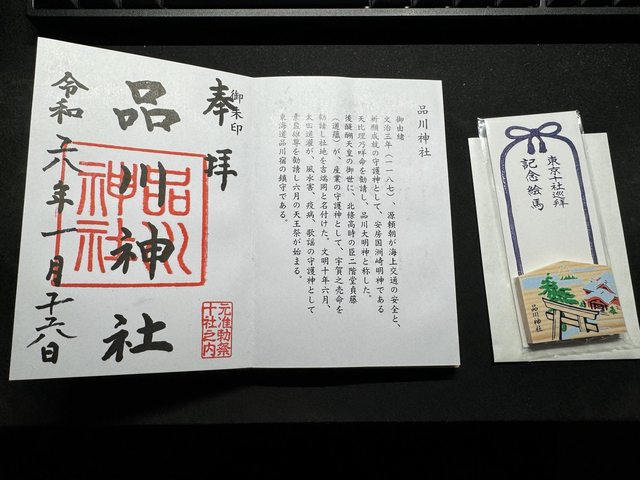 品川神社
御由緒
文治三年(一一八七)、源頼朝が海上交通の安全と、
祈願成就の守護神として、安房国洲崎明神である
天比理乃咩命を勧請し、品川大明神と称した。
後醍醐天皇の御世に、北條高時の臣二階堂貞藤
(道蘊)が、産業の守護神として、宇賀之売命を
勧請し社地を吉端岡と名付けた。文明十年六月、
太田道灌が、風水害、疫病、歌謡の守護神として
素盞雄尊を勧請し六月の天王祭が始まる。
東海道品川宿の鎮守である。
御朱印
奉拝
元准勅祭
十社之内
品川神社
品川
神社
令和六年一月十六日
東京十社巡拝
記念絵馬
品川神社